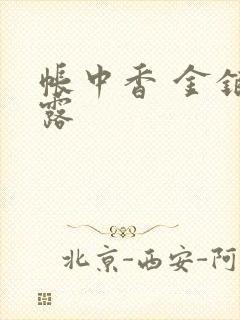 帳中香 金銷
露
北京-西安-阿